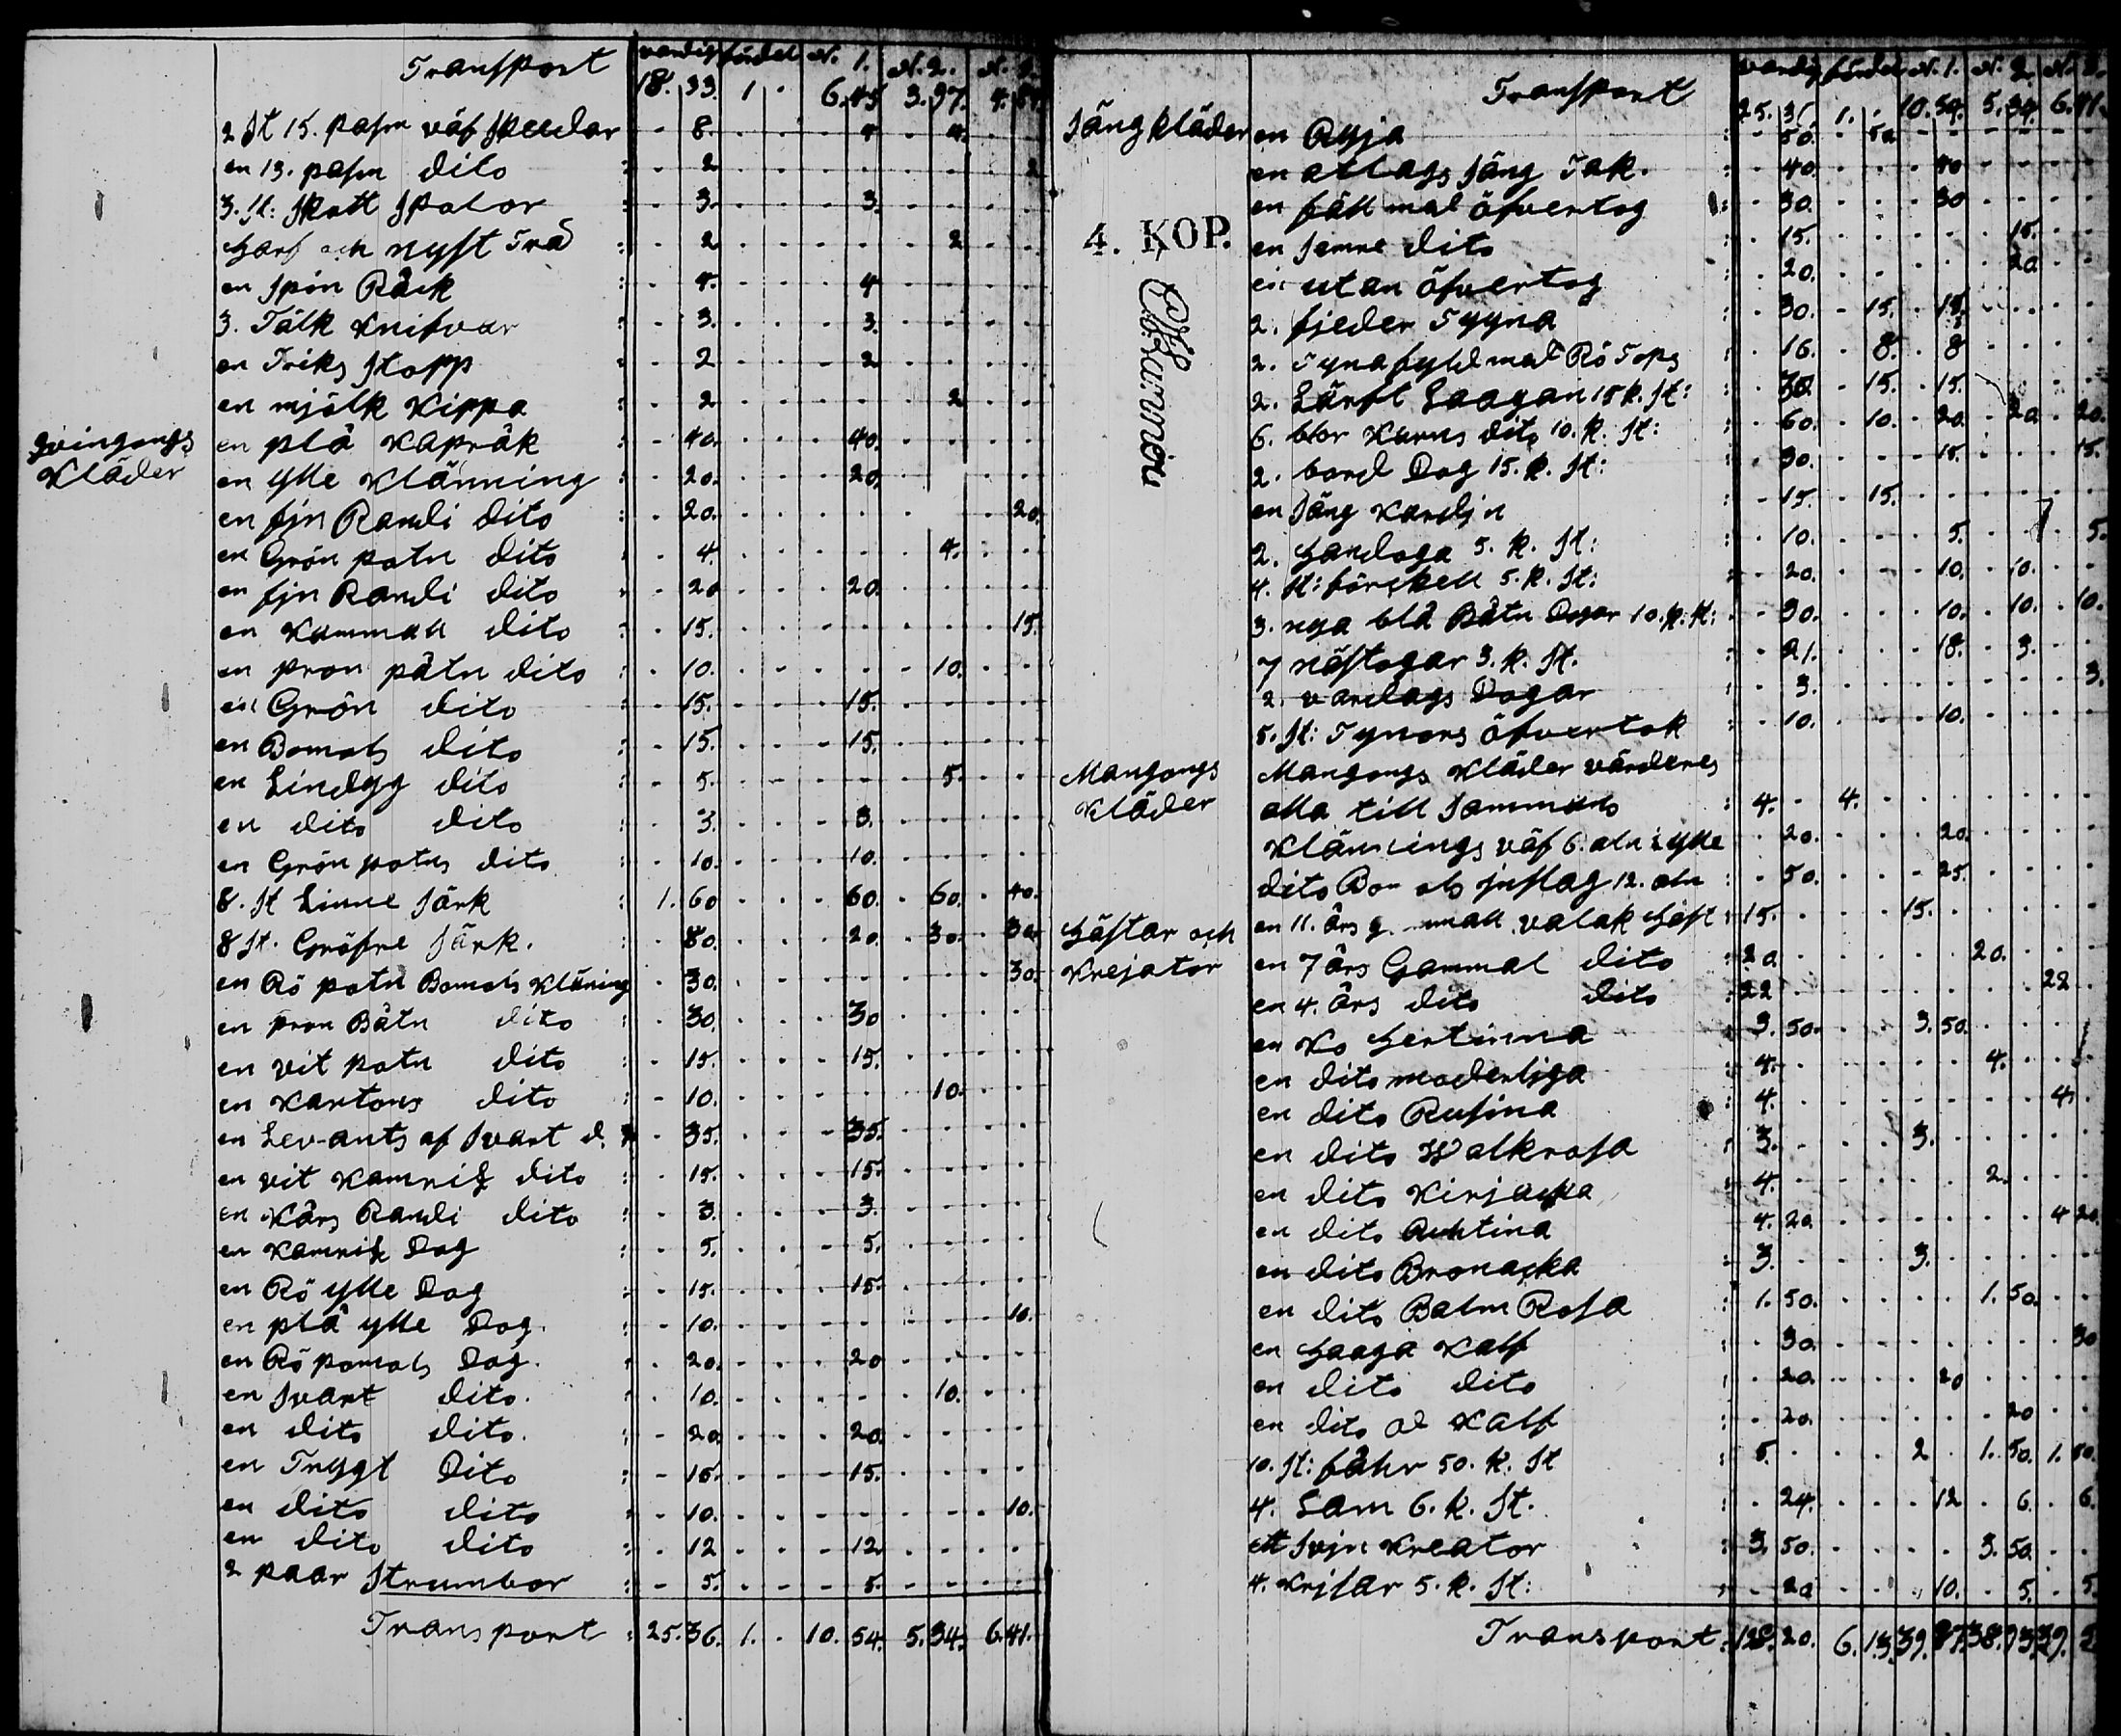 Transport värdig fördel N. 1. N. 2. N. 3.
18. 33. 1 . 6. 45 3. 37. 4.
2 St 15. pasm väf Skeedar : - 8. 4 4.
en 13. pasm dito : - 2 2
3. St: Skott Spolor : - 3. 3.
Harf och nyst Trä : - 2 2
en Spin Räck : - 4. 4
3. Tälk Knifvar : - 3. 3.
en Triks Stopp : - 2 2
en mjölk Kippa : - 2 2
Qvingongs en plå Kapråk : - 40. 40.
Kläder en ylle Klänning : - 20. 20.
en fjn Randi dito : - 20. 20.
en Grön potn dito : - 4. 4.
en fjn Randi dito - 20 20.
en Kammall dito : - 15. 15.
en pron påtn dito : - 10. 10.
en Grön dito : - 15. 15.
en Bomols dito : - 15. 15.
en Lindgg dito : - 5. 5.
en dito dito : - 3. 3.
en Grön potns dito : - 10. 10.
8. St Linne Särk : 1. 60 60. 60. 40.
8 St. Gröfre Särk. : - 80. 20. 30. 30.
en Rö potn Bomols Kläning - 30. 30.
en pron Båtn dito : - 30. 30
en vit potn dito : - 15. 15.
en Kartons dito : - 10. 10.
en Levants af Svart d. - 35. 35.
en vit Kamrik dito : - 15. 15.
en Kårs Randi dito : - 3. 3.
en Kamrik Dog : - 5. 5.
en Rö ylle Dog : - 15. 15.
en plå ylle Dog. : - 10. 10.
en Rö pomols Dog. : - 20. 20
en Svart dito. : 10. 10.
en dito dito. : - 20. 20.
en Trygt Dito : - 15. 15.
en dito dito : - 10. 10.
en dito dito : - 12 12.
2 paar Strumbor : - 5. 5.
Transport : 25. 36. 1. . 10. 54. 5. 34. 6. 41.
Transport värdig fördel N. 1. N. 2. N. 3.
25. 36. 1. . 10. 54. 5. 34. 6. 41.
Sängkläder en Ryja : - 50. 50
en allags Säng Tak. : - 40. 40
en fäll mal öfvertog : 30. 30
4. KOP. en Semre dito : - 15. 15.
en utan öfvertog : . 20. 20
2. fjeder Tyyna : . 30. - 15. 15.
2. Tynafyld mal Rö Tops : . 16. . 8. 8
2. Lärft Laagan 15 k. St: : . 30 - 15. 15.
6. blor Karns dito 10. k. St: : . 60. 10. 20. 20 20.
2. bord Dog 15. k. St: : . 30. 15. 15.
en Säng Kardin - 15. 15.
2. Handoga 5. k. St: : . 10. 5. 5.
4. St: förskell 5. k. St: - 20. 10. 10.
3. nya blå Båtn Dogar 10. k. St: - 30. 10. 10. 10.
7 nästogar 3. k. St. : - 21. 18. 3.
2. vardags Dogar : - 3. 3.
5. St: Tynors öfvertok : - 10. 10.
Mangongs Mangongs Kläder värderes
Kläder alla till Sammans : 4. - 4.
Klännings väf 6. aln i ylle . 20. 20.
dito Bomols inslag 12. aln : - 50. 25.
Hästar och en 11. års gammall valak Häst : 15. 15.
Krejator en 7 års Gammal dito : 20 20.
en 4. års dito dito : 22 22
en Ko Hertinna 3. 50. 3. 50.
en dito moderliga : 4. 4.
en dito Rusina : 4. 4.
en dito Walkrosa : 3. 3.
en dito Kirjacka : 4. 2.
en dito Auhtina 4. 20. 4 20
en dito Bronacka : 3. 3.
en dito Balm Rosa 1. 50. 1. 50.
en Haaga Kalf : . 30. 30
en dito dito . 20. 20
en dito al Kalf : - 20. 20
10. St: fåhr 50. k. St : 5. 2. 1. 50. 1. 50.
4. Lam 6. k. St. : . 24. 12 6. 6.
ett Svjn Kreator : 3. 50. 3. 50.
4. Krisar 5. k. St: : - 20 10. 5. 5.
Transport : 128. 20. 6. 13. 39. 87. 38. 93. 39.